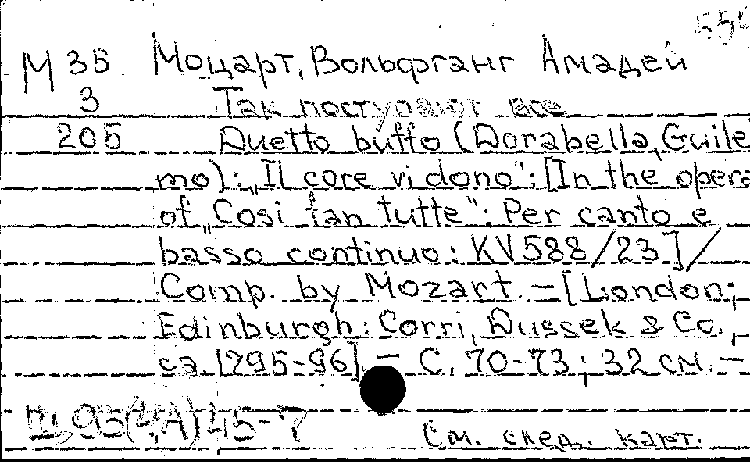 М 35 Моцарт, Вольфганг Амадей
3 Так поступают все
205 Duetto buffo (Dorabella, Guile
mo): „Il core vi dono": [In the opera
of „Cosi fan tutte": Per canto e
basso continuo: KV 588/23] /
Comp. by Mozart. — [London;
Edinburgh: Corri, Dussek & Co.,
ca 1795-96]. — С. 70-73; 32 см. —
См. след. карт.